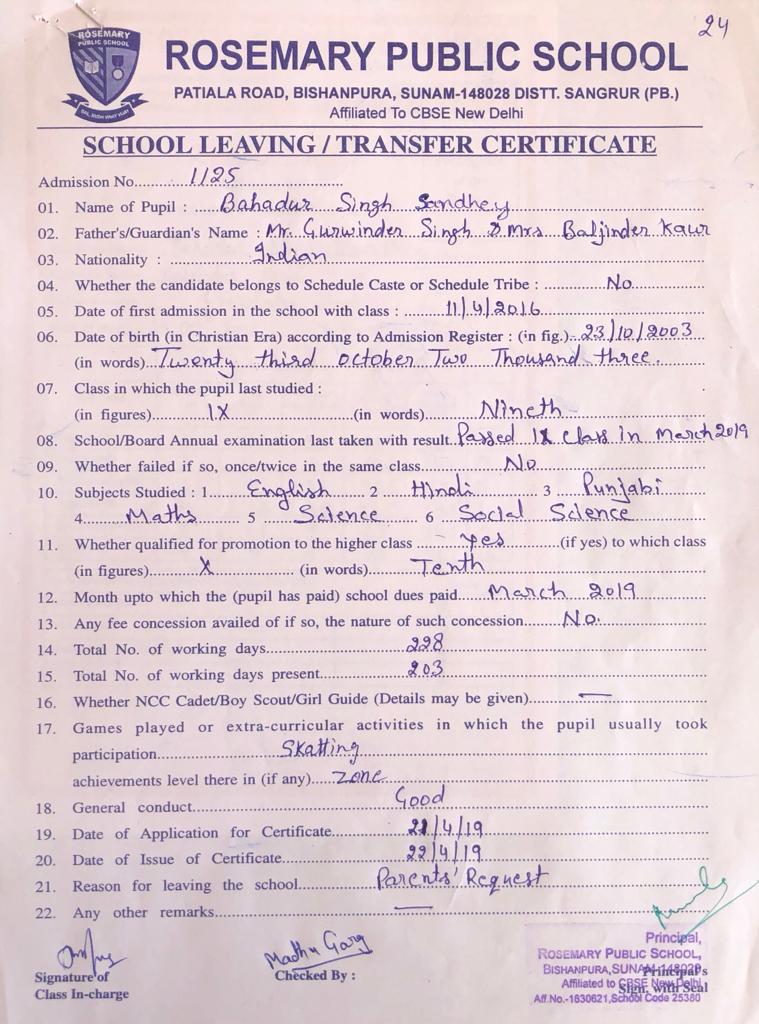 24
ROSEMARY
PUBLIC SCHOOL
ROSEMARY PUBLIC SCHOOL
PATIALA ROAD, BISHANPURA, SUNAM-148028 DISTT. SANGRUR (PB.)
Affiliated To CBSE New Delhi
SCHOOL LEAVING / TRANSFER CERTIFICATE
Admission No. 1125
01. Name of Pupil : Bahadur Singh Sandhey
02. Father's/Guardian's Name : Mr. Gurwinder Singh & Mrs Baljinder Kaur
03. Nationality : Indian
04. Whether the candidate belongs to Schedule Caste or Schedule Tribe : No
05. Date of first admission in the school with class : 11/4/2016
06. Date of birth (in Christian Era) according to Admission Register : (in fig.) 23/10/2003
(in words) Twenty third october Two Thousand three.
07. Class in which the pupil last studied :
(in figures) IX (in words) Nineth
08. School/Board Annual examination last taken with result. Passed IX class in March 2019
09. Whether failed if so, once/twice in the same class No
10. Subjects Studied : 1 English 2 Hindi 3 Punjabi
4 Maths 5 Science 6 Social Science
11. Whether qualified for promotion to the higher class yes (if yes) to which class
(in figures) X (in words) Tenth
12. Month upto which the (pupil has paid) school dues paid March 2019
13. Any fee concession availed of if so, the nature of such concession No.
14. Total No. of working days 228
15. Total No. of working days present 203
16. Whether NCC Cadet/Boy Scout/Girl Guide (Details may be given) —
17. Games played or extra-curricular activities in which the pupil usually took
participation Skatting
achievements level there in (if any) zone
18. General conduct Good
19. Date of Application for Certificate 21/4/19
20. Date of Issue of Certificate 22/4/19
21. Reason for leaving the school Parents' Request
22. Any other remarks —
Madhu Garg
Signature of
Class In-charge
Checked By :
Principal's
Sign. with Seal
Principal,
ROSEMARY PUBLIC SCHOOL,
BISHANPURA, SUNAM-148028
Affiliated to CBSE New Delhi
Aff.No.-1630621, School Code 25380